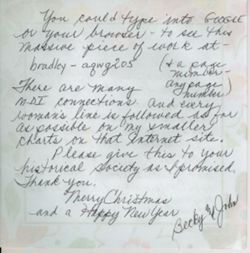 You could type into GOOGLE
or your browser - to see this
massive piece of work at -
bradley - aqwg205 (& a page
number -
any page
number)
There are many
MDI connections and every
woman's line is followed as far
as possible on my smaller
charts on that Internet site.
Please give this to your
historical society as I promised.
Thank you.
Merry Christmas
and a Happy New Year
Becky & John